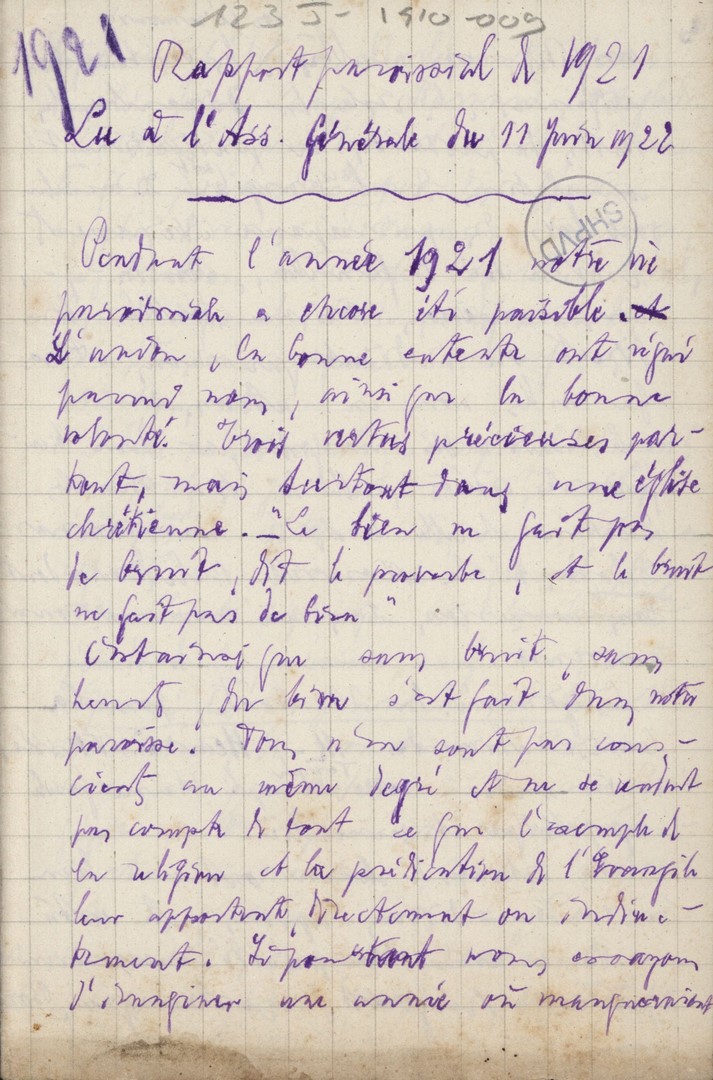 123 J - 1910-009
1921
Rapport paroissial de 1921
Lu à l'Ass. Générale du 11 Juin 1922
SHPVD
Pendant l'année 1921 notre vie
paroissiale a encore été paisible. et
L'union, la bonne entente ont régné
parmi nous, ainsi que la bonne
volonté. Trois vertus précieuses par-
tout, mais surtout dans une église
chrétienne. - "Le bien ne fait pas
de bruit, dit le proverbe, et le bruit
ne fait pas de bien"
C'est ainsi que sans bruit, sans
heurts, du bien s'est fait dans notre
paroisse. Tous n'en sont pas cons-
cients au même degré et ne se rendent
pas compte de tout ce que l'exemple de
la religion et la prédication de l'Evangile
leur apportent, directement ou indirec-
tement. Si pourtant nous essayons
d'imaginer une année où manqueraient